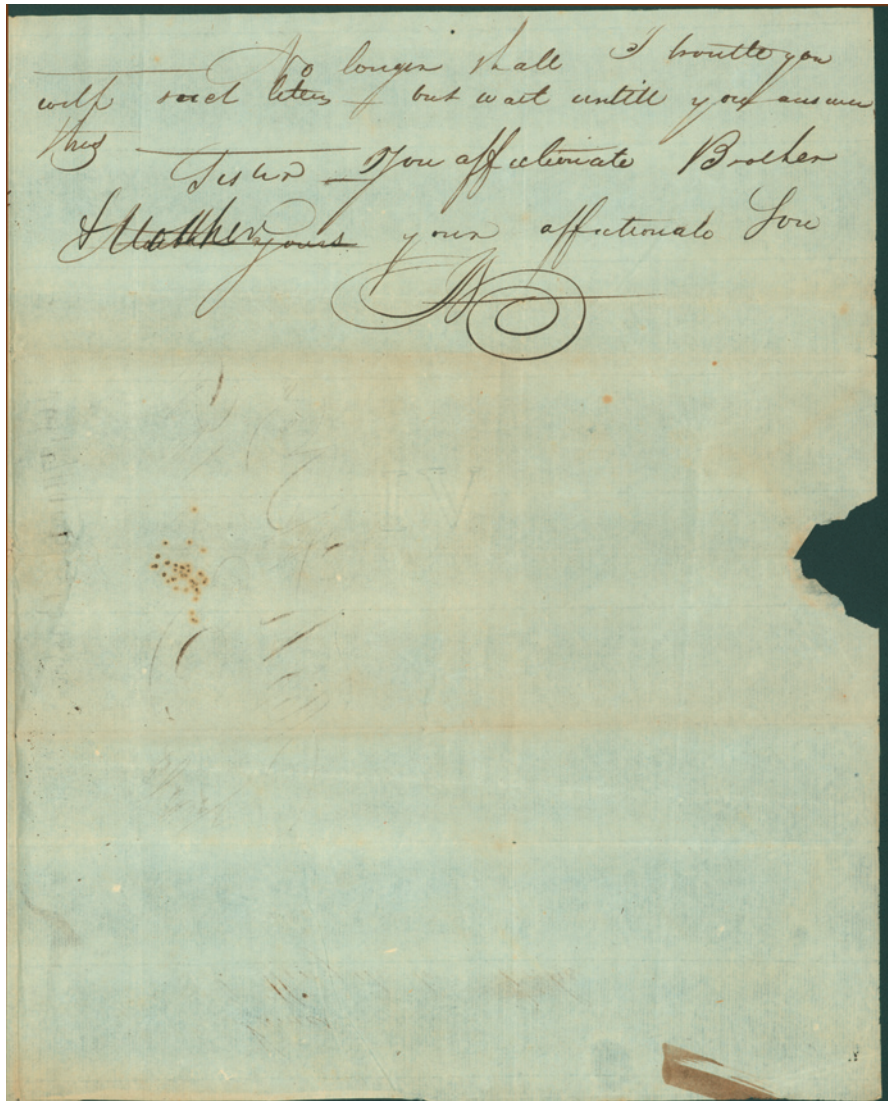 No longer shall I troutle you
with such leters & but wait untill you answer
this
Sister You affectionate Brother
& Matther yours your affectionate Son